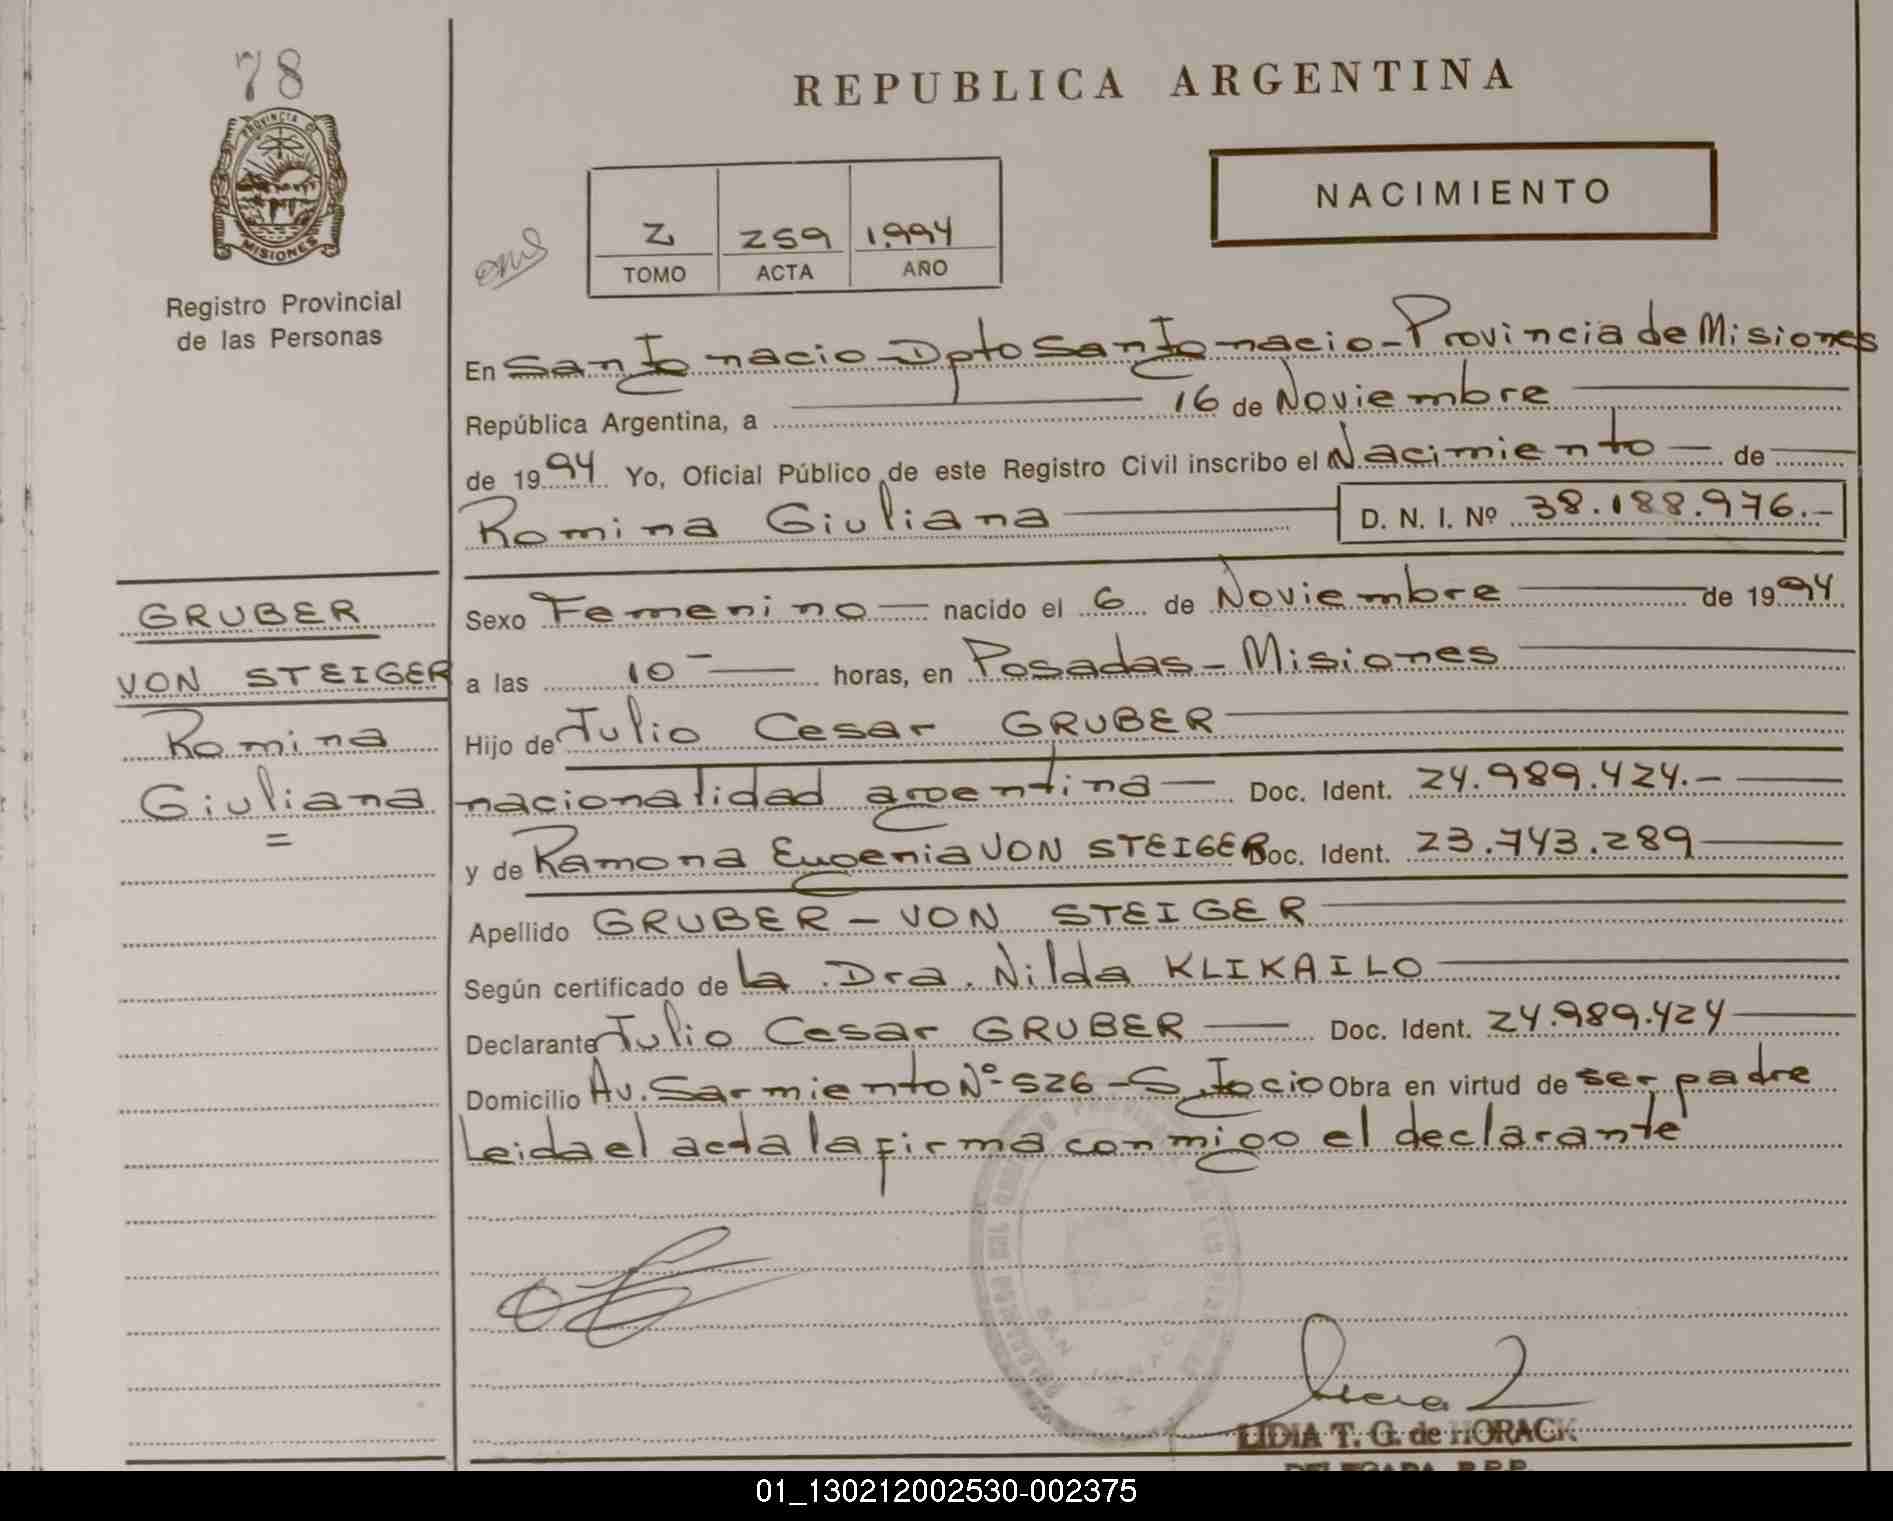 78
PROVINCIA DE
MISIONES
Registro Provincial
de las Personas
REPUBLICA ARGENTINA
NACIMIENTO
2 259 1.994
TOMO ACTA AÑO
En San Ignacio - Dpto San Ignacio - Provincia de Misiones
República Argentina, a 16 de Noviembre
de 1994 Yo, Oficial Público de este Registro Civil inscribo el Nacimiento - de
Romina Giuliana D. N. I. Nº 38.188.976.-
GRUBER
VON STEIGER
Romina
Giuliana
=
Sexo Femenino - nacido el 6 de Noviembre de 1994
a las 10 - horas, en Posadas - Misiones
Hijo de Julio Cesar GRUBER
nacionalidad argentina - Doc. Ident. 24.989.424.-
y de Ramona Eugenia VON STEIGER Doc. Ident. 23.743.289
Apellido GRUBER - VON STEIGER
Según certificado de la Dra. Nilda KLIKAILO
Declarante Julio Cesar GRUBER Doc. Ident. 24.989.424
Domicilio Av. Sarmiento Nº 526 - S. Igcio Obra en virtud de ser padre
Leida el acta la firma conmigo el declarante
LIDIA T. G. de HORACK
DELEGADA R.P.P.
01_130212002530-002375